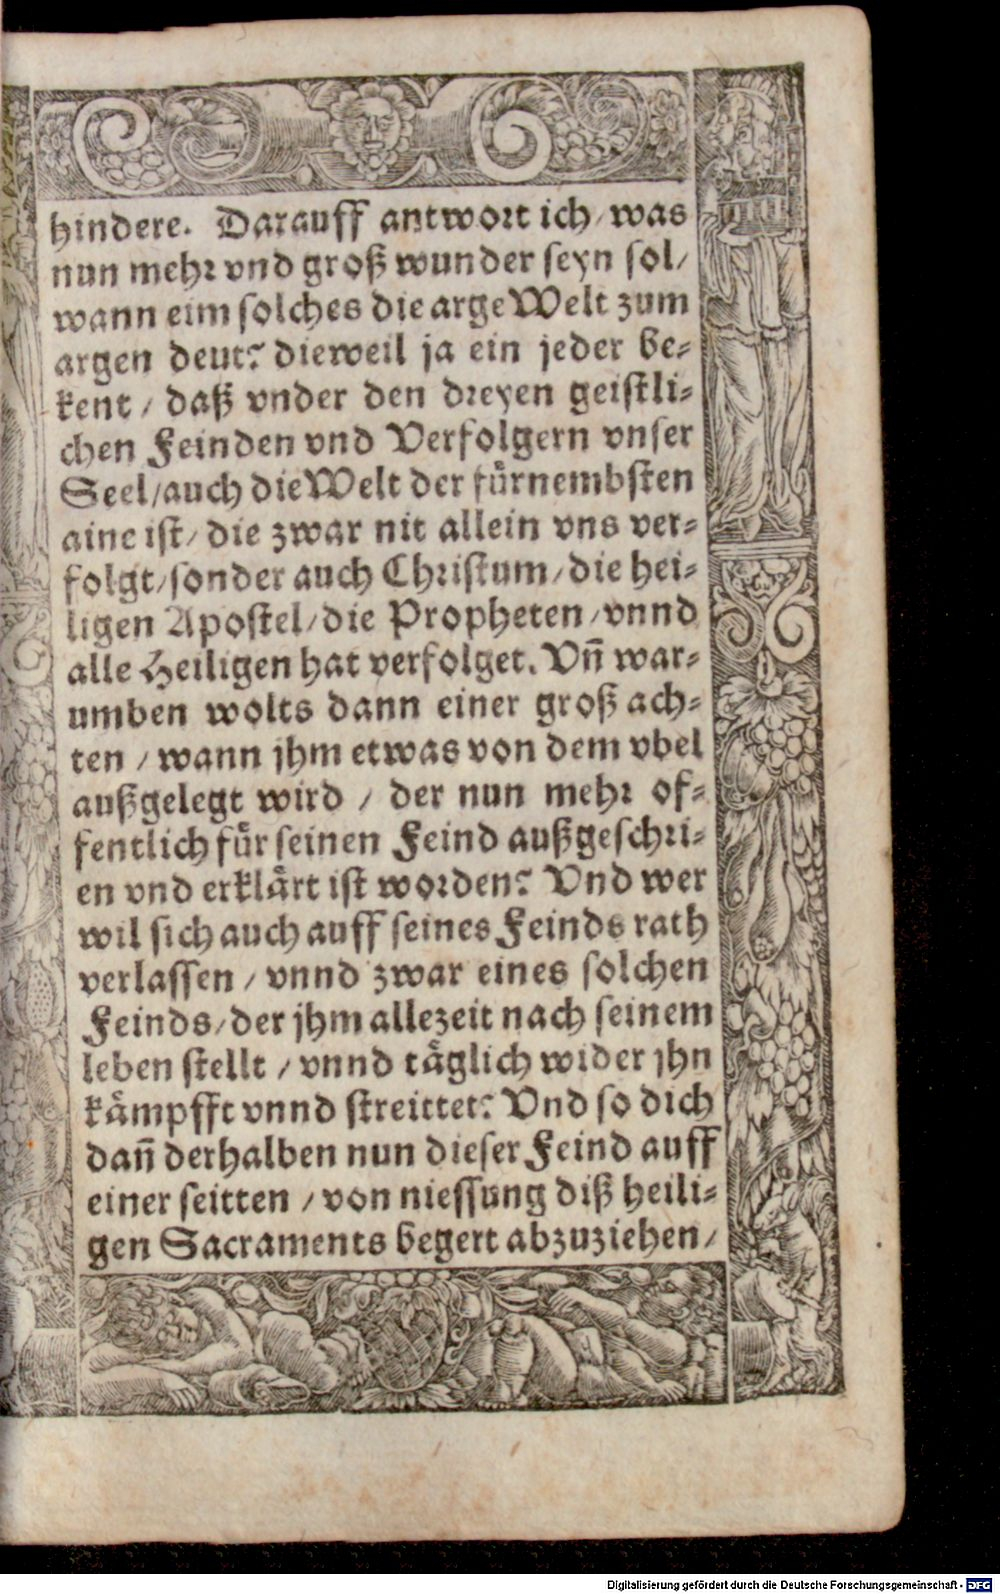 hindere. Darauff antwort ich / was
nun mehr vnd groß wunder seyn sol /
wann eim solches die arge Welt zum
argen deut? dieweil ja ein jeder be-
kent / daß vnder den dreyen geistli-
chen Feinden vnd Verfolgern vnser
Seel / auch die Welt der fürnembsten
aine ist / die zwar nit allein vns ver-
folgt / sonder auch Christum / die hei-
ligen Apostel / die Propheten / vnnd
alle Heiligen hat verfolget. Vñ war-
umben wolts dann einer groß ach-
ten / wann jhm etwas von dem vbel
außgelegt wird / der nun mehr of-
fentlich für seinen Feind außgeschri-
en vnd erklärt ist worden? Vnd wer
wil sich auch auff seines Feinds rath
verlassen / vnnd zwar eines solchen
Feinds / der jhm allezeit nach seinem
leben stellt / vnnd täglich wider jhn
kämpfft vnnd streittet? Vnd so dich
dañ derhalben nun dieser Feind auff
einer seitten / von niessung diß heili-
gen Sacraments begert abzuziehen /
Digitalisierung gefördert durch die Deutsche Forschungsgemeinschaft - DFG